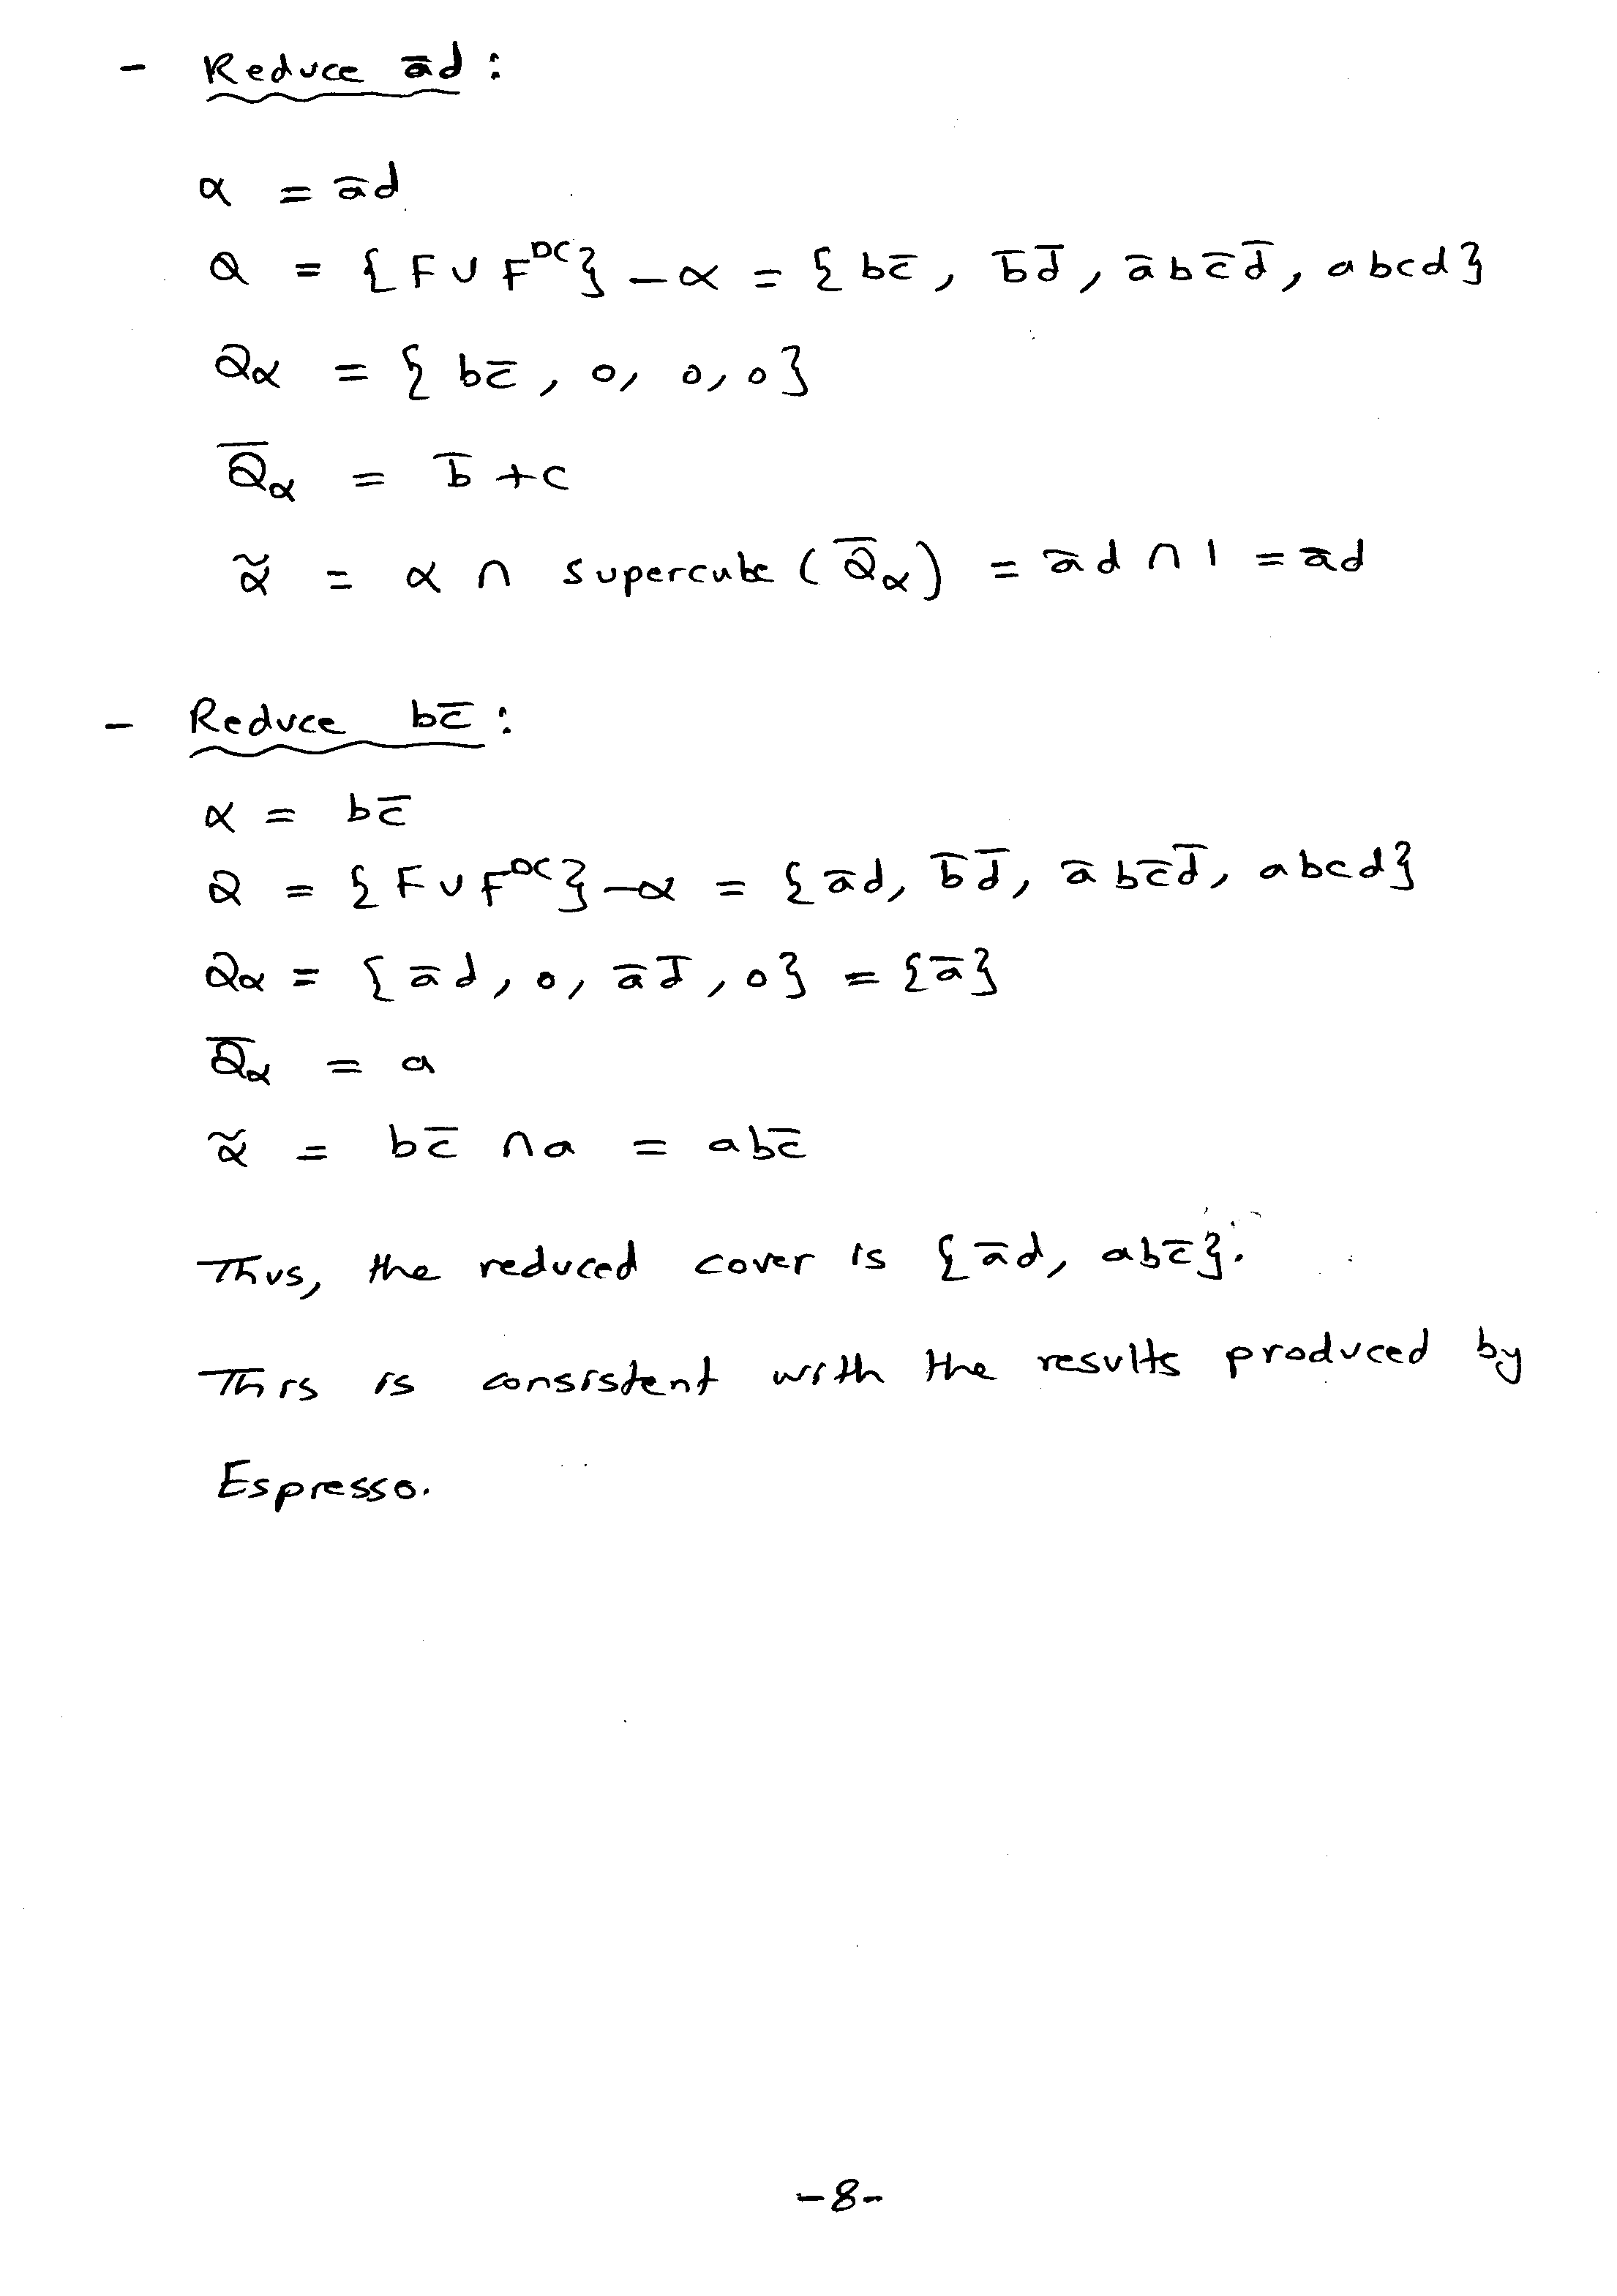 - Reduce a̅d :
α = a̅d
Q = {F ∪ F^DC} - α = {bc̅, b̅d̅, a̅bc̅d̅, abcd}
Qα = {bc̅, 0, 0, 0}
Q̅α = b̅ + c
α̃ = α ∩ supercube (Q̅α) = a̅d ∩ 1 = a̅d
- Reduce bc̅ :
α = bc̅
Q = {F ∪ F^DC} - α = {a̅d, b̅d̅, a̅bc̅d̅, abcd}
Qα = {a̅d, 0, a̅d̅, 0} = {a̅}
Q̅α = a
α̃ = bc̅ ∩ a = abc̅
Thus, the reduced cover is {a̅d, abc̅}.
This is consistent with the results produced by
Espresso.
-8-